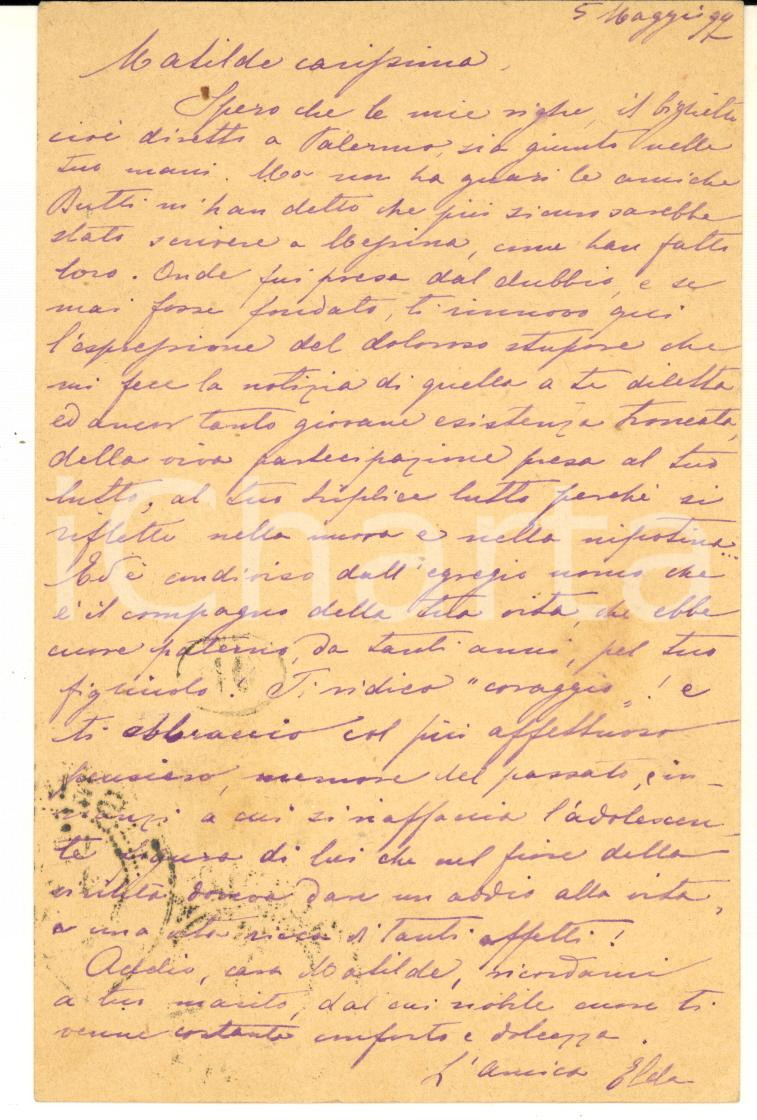 5 Maggio 97
Matilde carissima,
Spero che le mie righe, il biglietto
cioè diretto a Palermo, sia giunto nelle
tue mani. Ma non ha guari le amiche
Butti m'han detto che più sicuro sarebbe
stato scrivere a Messina, come han fatto
loro. Onde fui presa dal dubbio, e se
mai fosse fondato, ti rinnovo qui
l'espressione del doloroso stupore che
mi fece la notizia di quella a te diletta
ed ancor tanto giovane esistenza troncata,
della viva partecipazione presa al tuo
lutto, al tuo triplice lutto perché si
riflette nella nuora e nella nipotina...
Ed è condiviso dall'egregio uomo che
è il compagno della tua vita, che ebbe
cuore paterno, da tanti anni, pel tuo
figliuolo. Ti ridico "coraggio"! e
ti abbraccio col più affettuoso
pensiero, memore del passato, in-
nanzi a cui si riaffaccia l'adolescen-
te figura di lui che nel fiore della
virilità doveva dare un addio alla vita,
a una vita ricca di tanti affetti!
Addio, cara Matilde, ricordami
a tuo marito, dal cui nobile cuore ti
venne costante conforto e dolcezza.
L'Amica Elda
iCharta